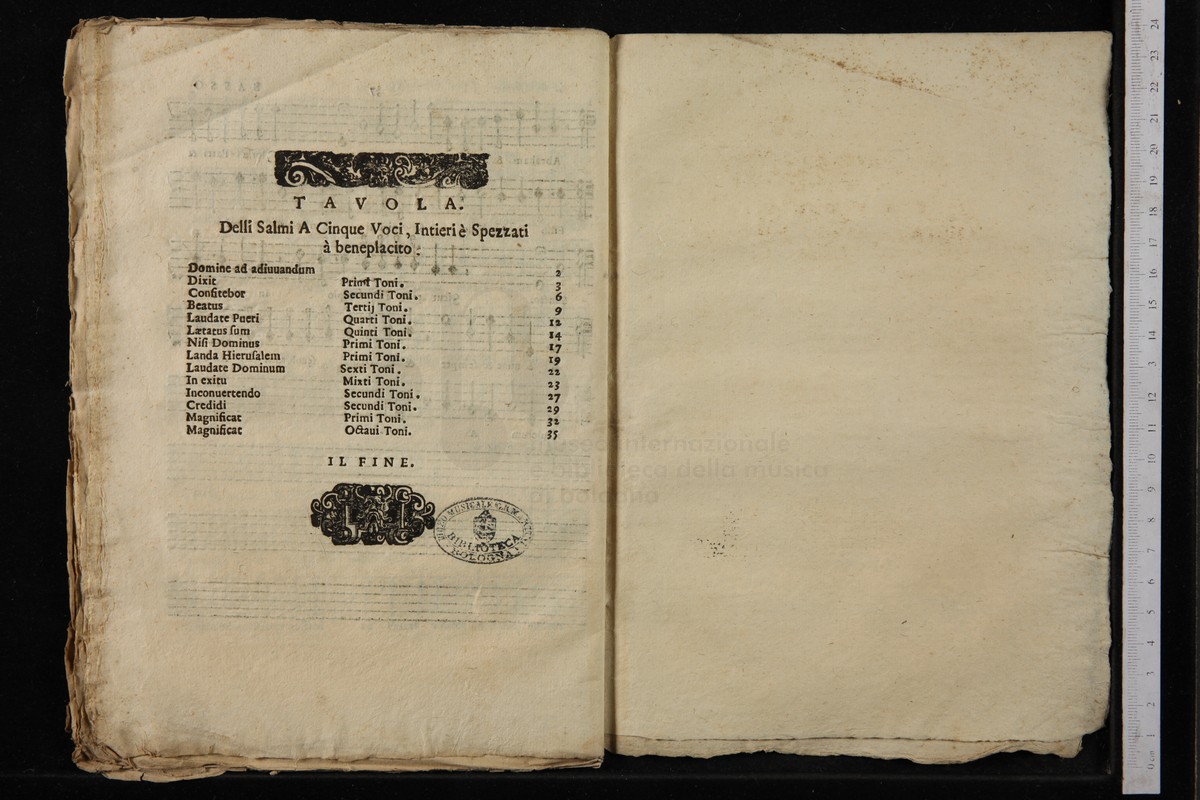 TAVOLA.
Delli Salmi A Cinque Voci, Intieri è Spezzati
à beneplacito.
Domine ad adiuuandum 2
Dixit Primi Toni. 3
Confitebor Secundi Toni. 6
Beatus Tertij Toni. 9
Laudate Pueri Quarti Toni. 12
Lætatus ſum Quinti Toni. 14
Niſi Dominus Primi Toni. 17
Landa Hieruſalem Primi Toni. 19
Laudate Dominum Sexti Toni. 22
In exitu Mixti Toni. 23
Inconuertendo Secundi Toni. 27
Credidi Secundi Toni. 29
Magnificat Primi Toni. 32
Magnificat Octaui Toni. 35
IL FINE.
BIBLIOTECA
BOLOGNA
museo internazionale
biblioteca della musica
di bologna
0 cm 1 2 3 4 5 6 7 8 9 10 11 12 13 14 15 16 17 18 19 20 21 22 23 24